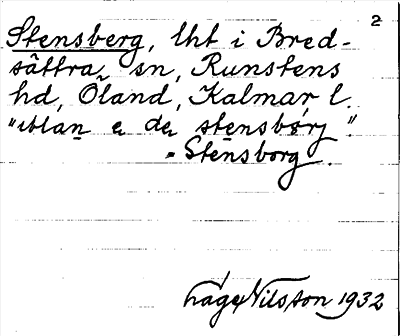 2
Stensberg, lht i Bred-
sättra sn, Runstens
hd, Öland, Kalmar l.
"ıblan e de stensbørj".
= Stensborg.
Hage Nilsson 1932